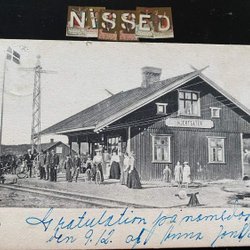 NISSED
HJERTSÄTER
Gratulation på namnsdagen
den 9.12. af